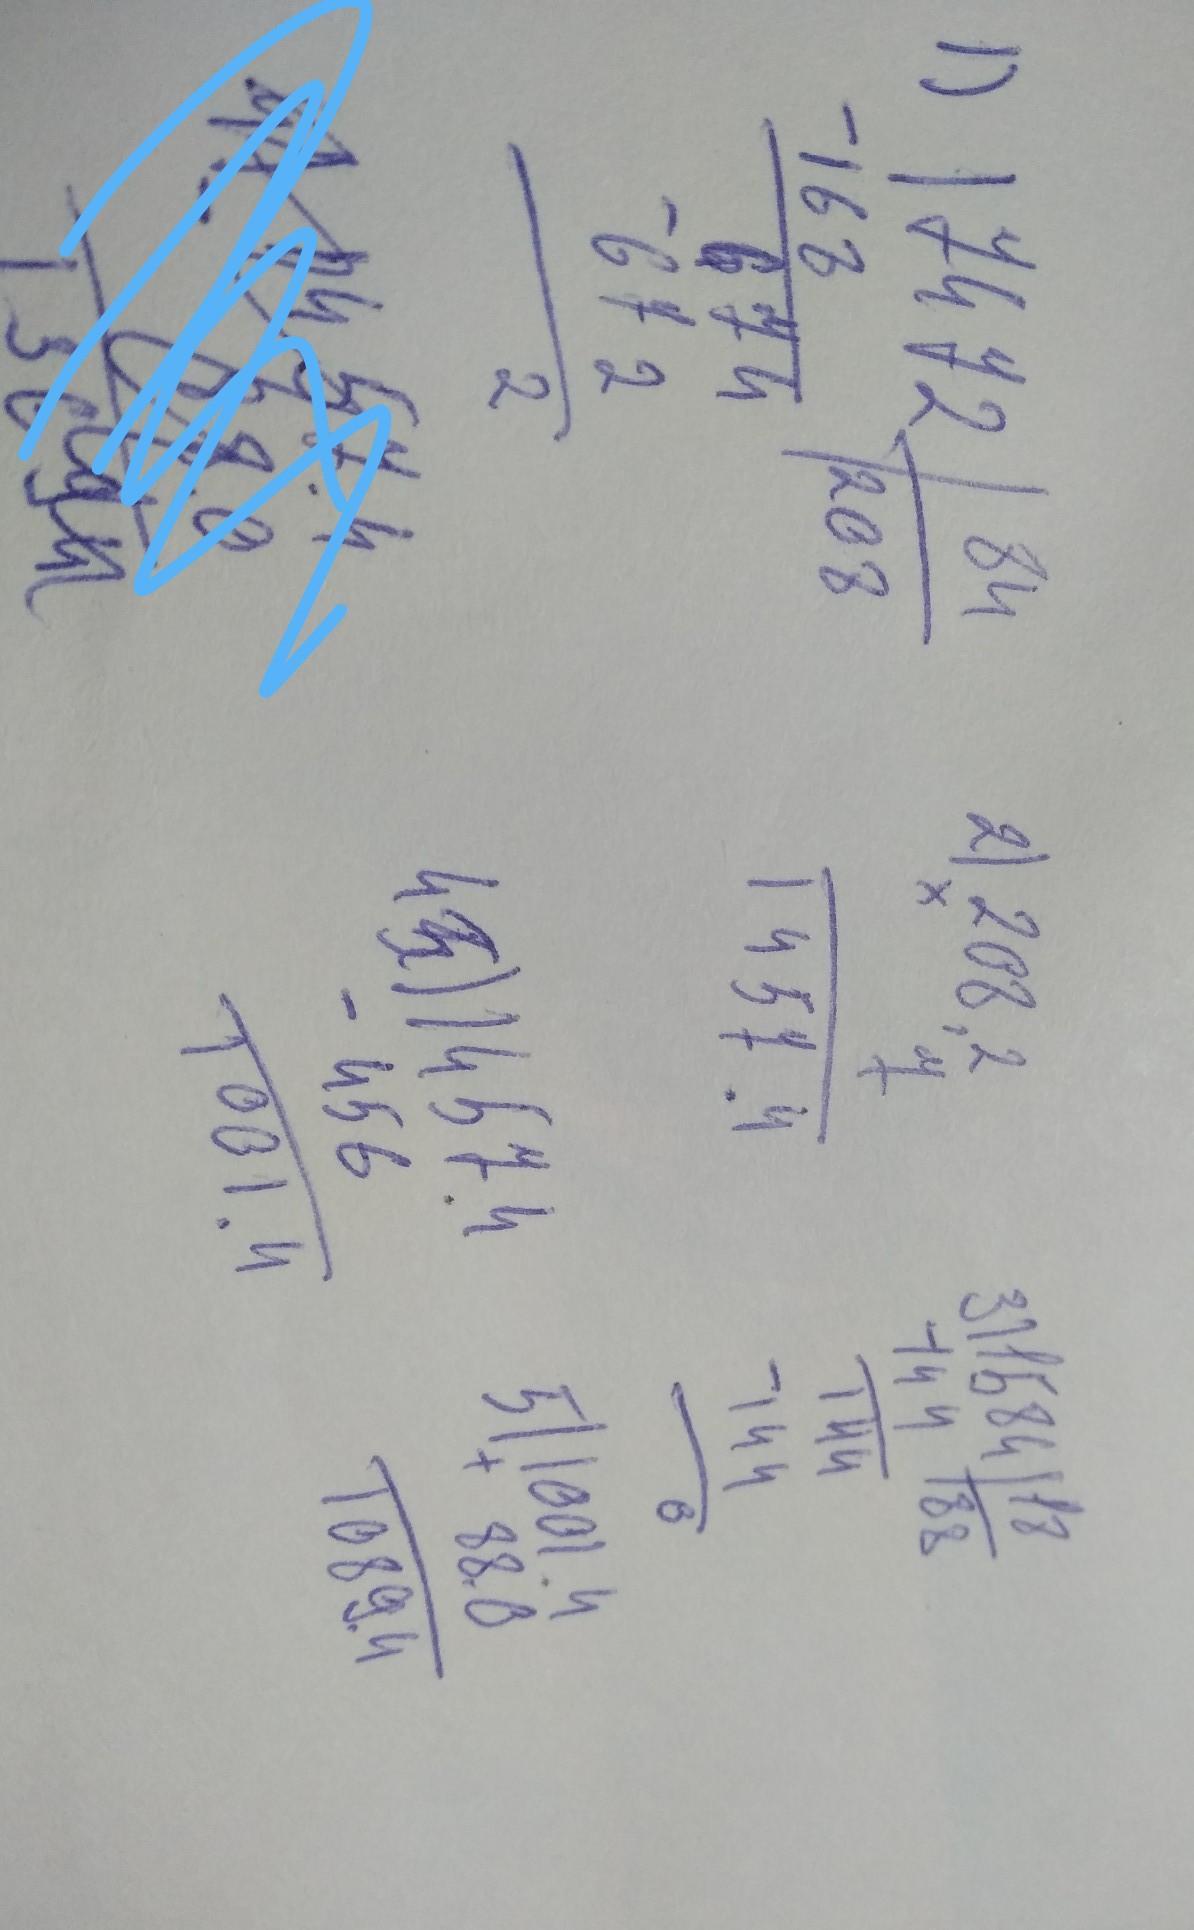 1) 17472 | 84
-168 208
674
-672
2
2) 208,2
× 7
1457.4
3) 1584 | 18
-144 88
144
-144
0
4) 1457.4
- 456
1001.4
5) 1001.4
+ 88.0
1089.4